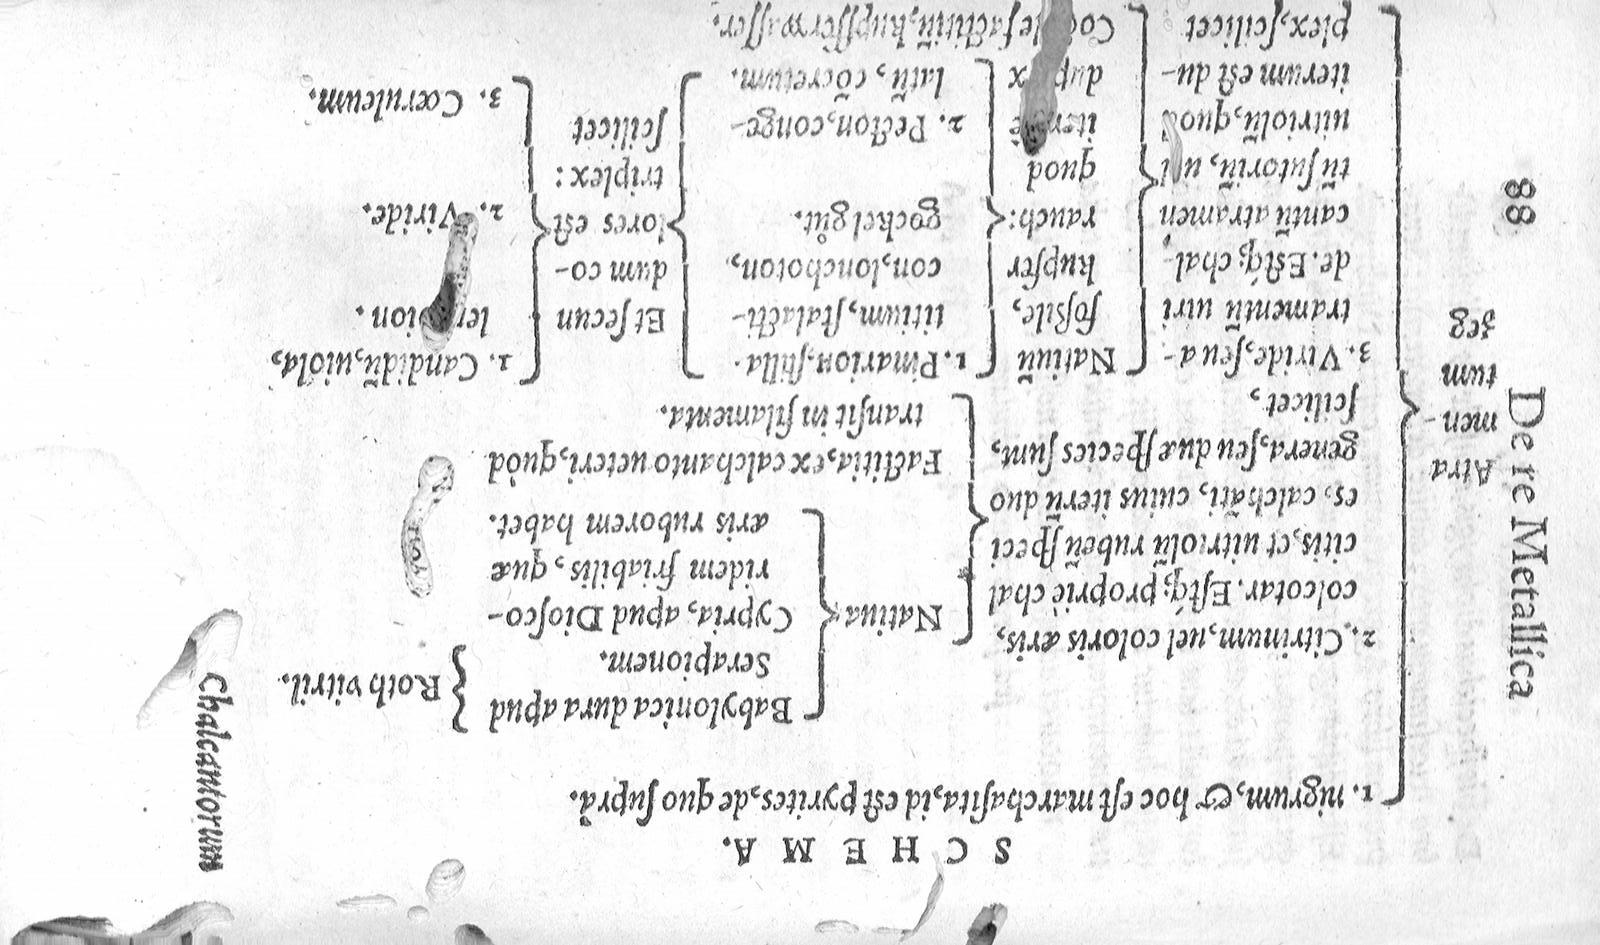 88 De re Metallica
Chalcantorum
SCHEMA.
1. nigrum, & hoc est marchasita, id est pyrites, de quo suprà.
Atra
men-
tum
zeg
2. Citrinum, uel coloris æris,
colcotar. Estq; propriè chal
citis, et uitriolũ rubeũ speci
es, calchãti, cuius iterũ duo
genera, seu duæ species sunt,
scilicet,
Natiua
Babylonica dura apud
Serapionem.
Cypria, apud Diosco-
ridem friabilis, quæ
æris ruborem habet.
Roth vitril.
Factitia, ex calchanto ueteri, quòd
transit in filamenta.
3. Viride, seu a-
tramentũ uiri
de. Estq; chal-
cantũ atramen
tũ sutoriũ, uel
uitriolũ, quod
iterum est du-
plex, scilicet
Natiuũ
fossile,
kupfer
rauch:
quod
iterũ
duplex
1. Pinarion, stilla-
titium, stalacti-
con, lonchoton,
gockel gůt.
2. Pecton, conge-
latũ, cõcretum.
Et secun
dum co-
lores est
triplex:
scilicet
1. Candidũ, uiola,
2. Viride.
3. Cœruleum.
factitiũ, kupfferwasser.